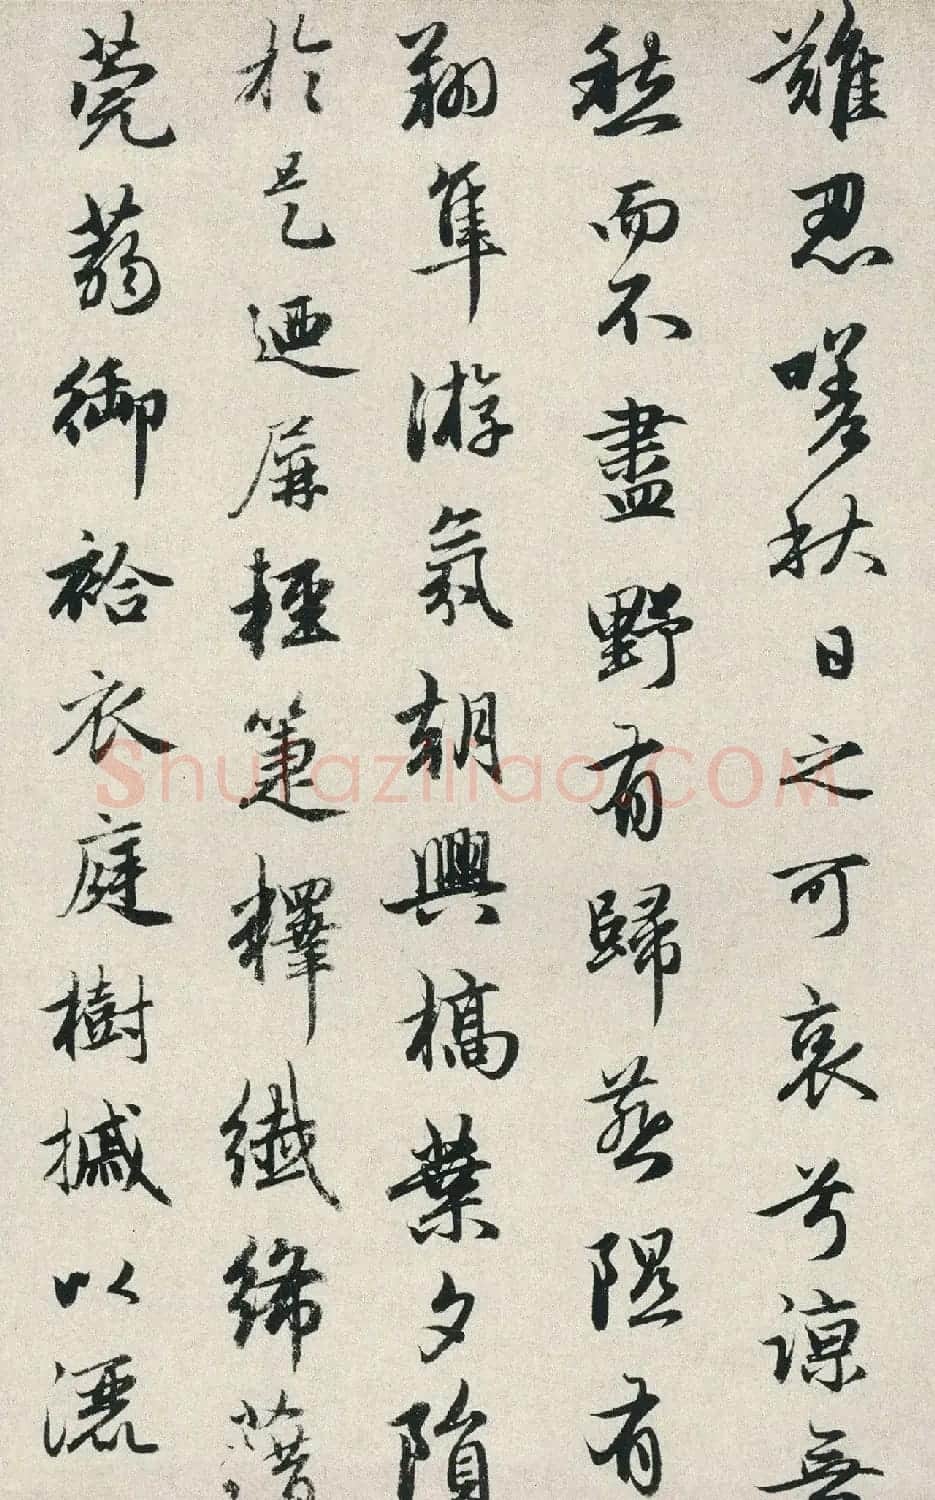 難忍嗟秋日之可哀兮諒無
愁而不盡野有歸燕隰有
翔隼游氛朝興槁葉夕隕
於是迺屏輕箑釋纖絺藉
莞蒻御袷衣庭樹摵以灑
Shufaziliao.COM